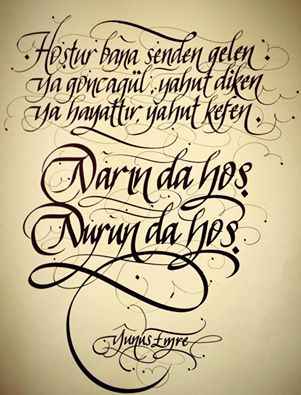 Hoştur bana senden gelen
ya goncagül, yahut diken
ya hayattır, yahut kefen.
Narın da hoş
Nurun da hoş.
Yunus Emre